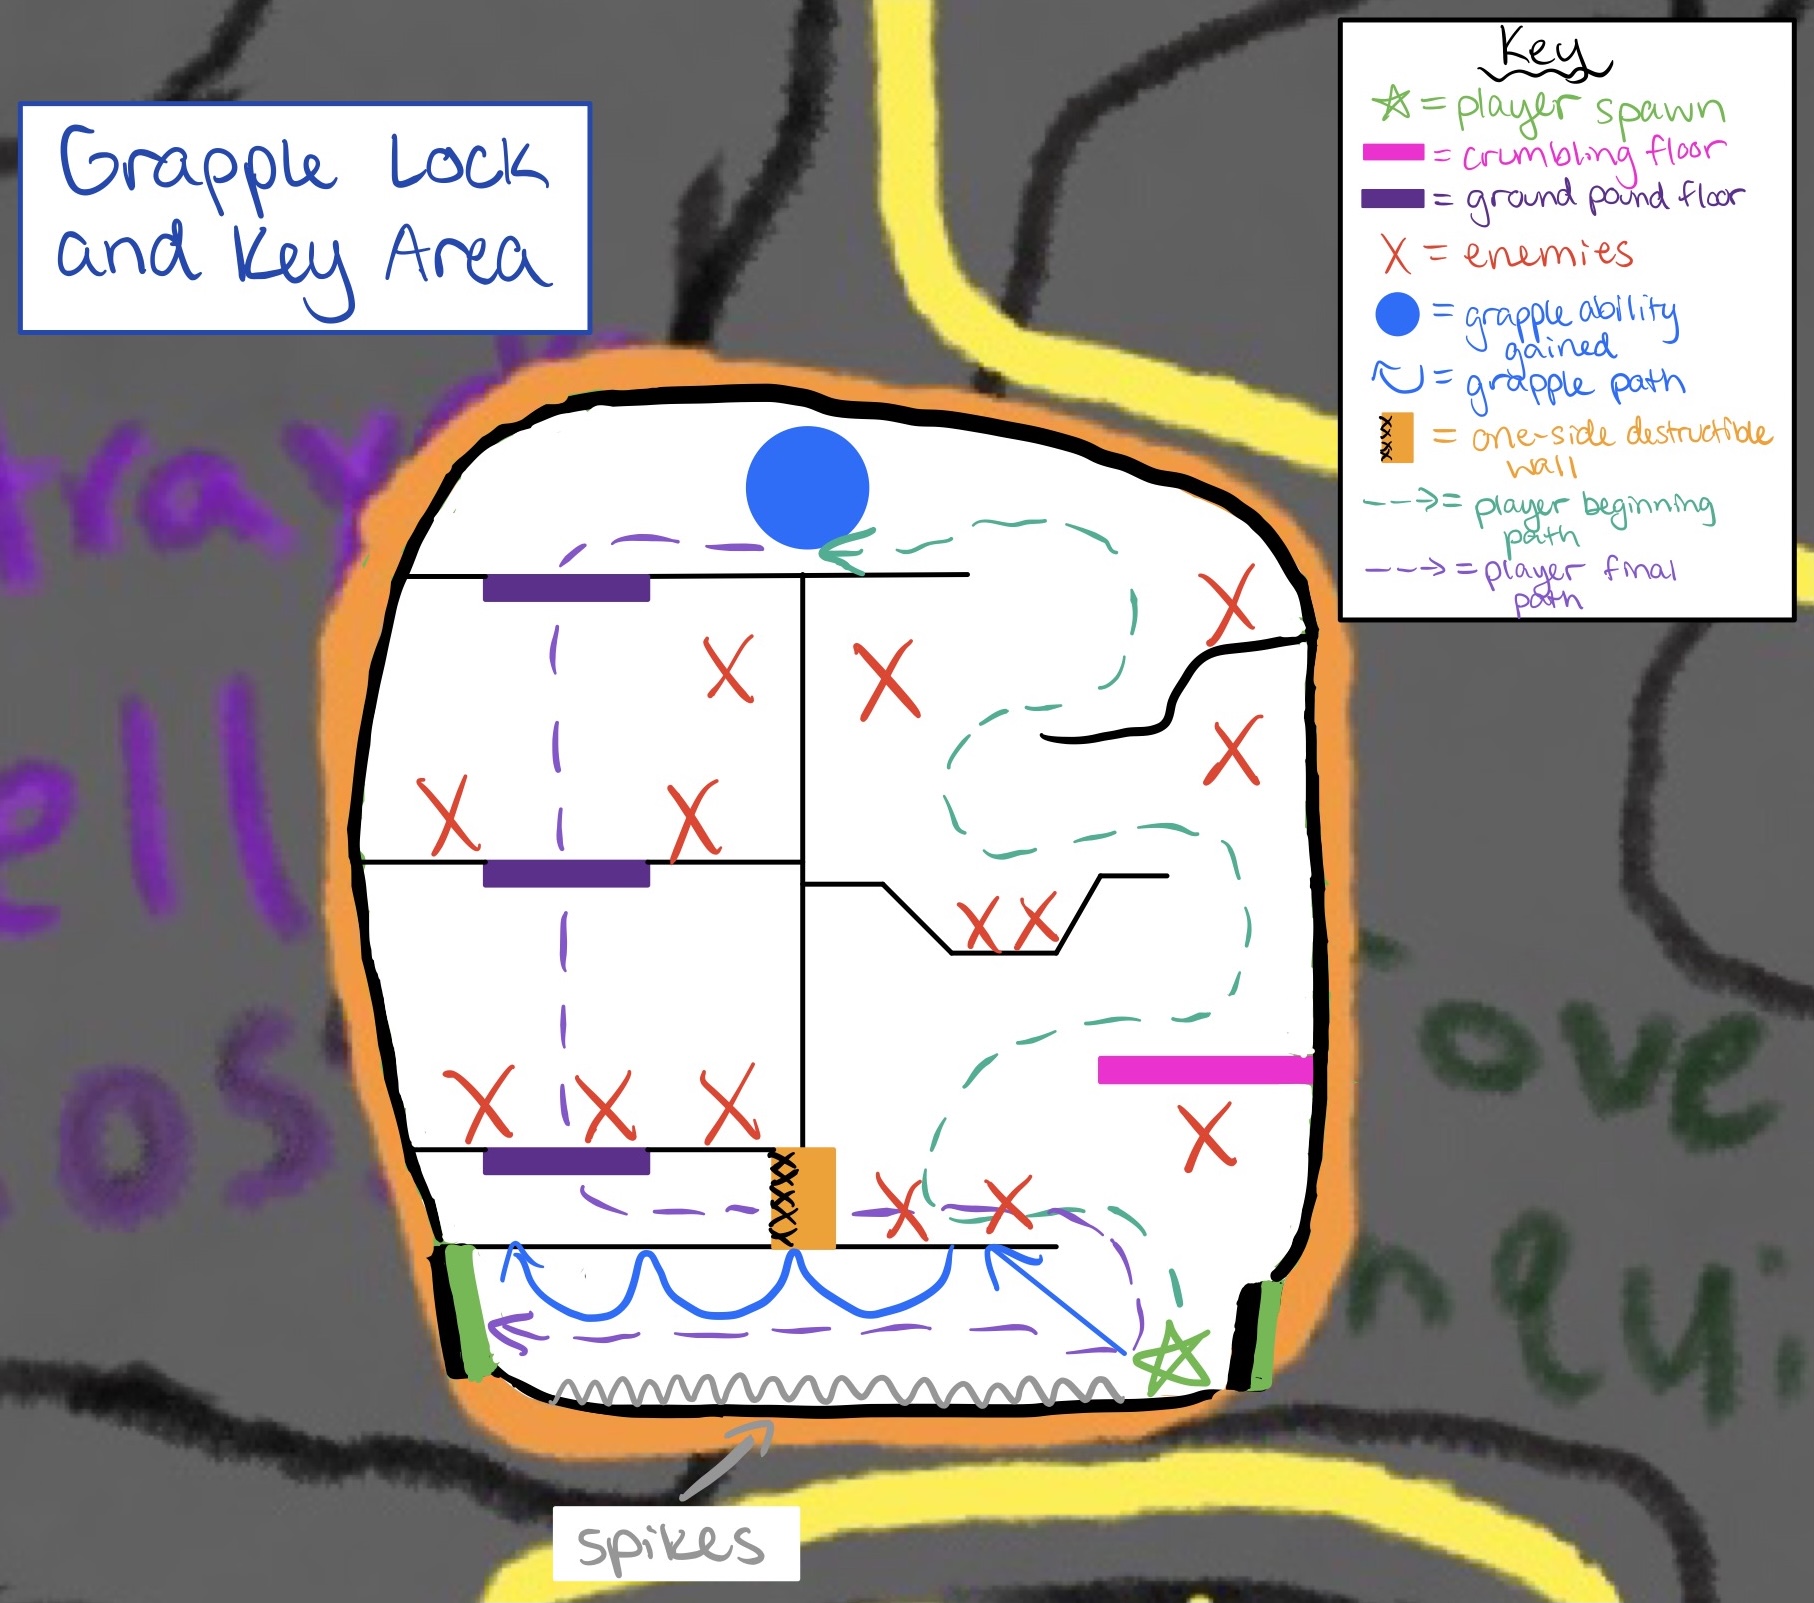 Grapple Lock
and Key Area
Key
= player spawn
= crumbling floor
= ground pound floor
X = enemies
= grapple ability
gained
= grapple path
= one-side destructible
wall
= player beginning
path
= player final
path
spikes